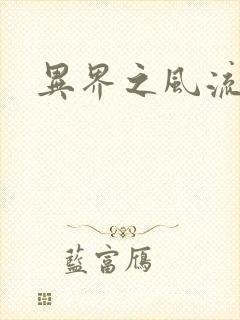 異界之風流
藍富鴈